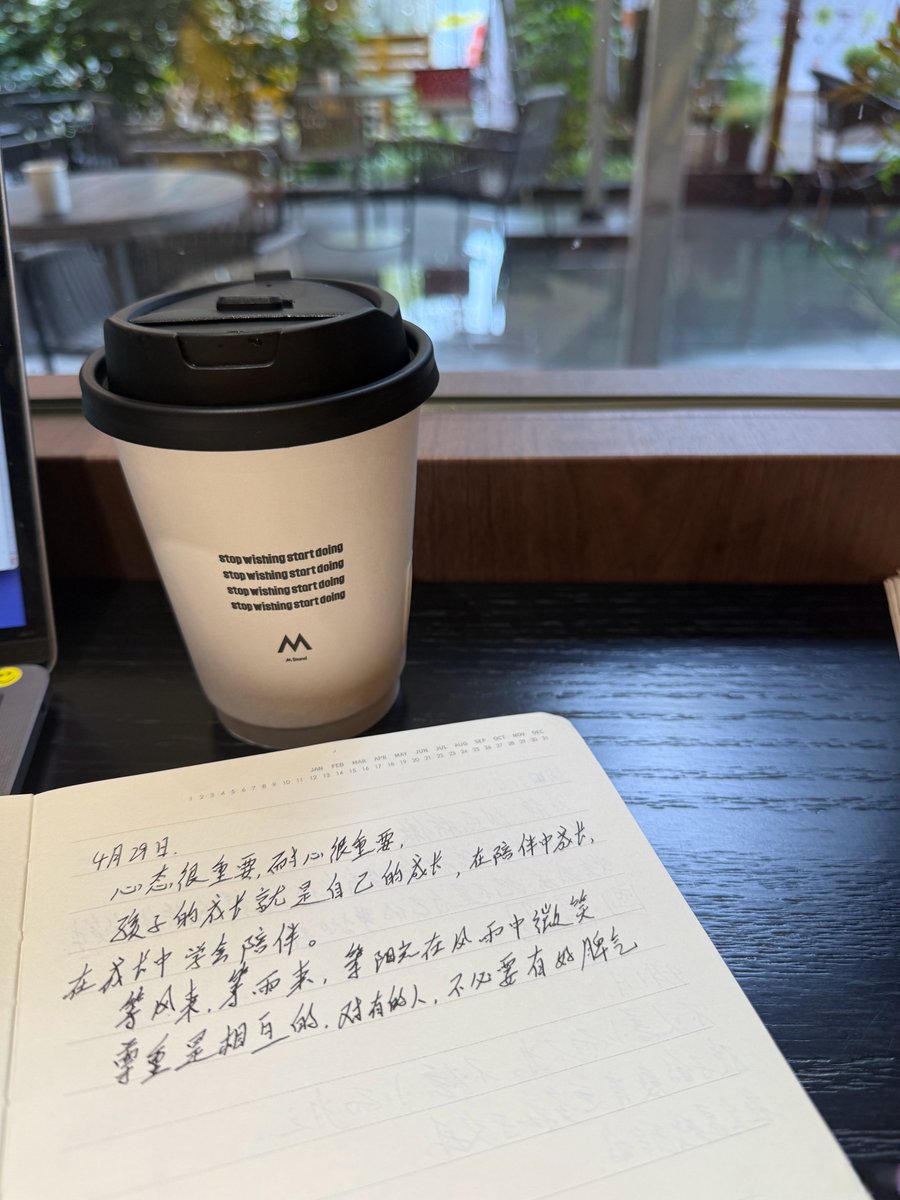 stop wishing start doing
stop wishing start doing
stop wishing start doing
stop wishing start doing
M
M Stand
JAN FEB MAR APR MAY JUN JUL AUG SEP OCT NOV DEC
1 2 3 4 5 6 7 8 9 10 11 12 13 14 15 16 17 18 19 20 21 22 23 24 25 26 27 28 29 30 31
4月29日.
心态很重要,耐心很重要,
孩子的成长就是自己的成长,在陪伴中成长,
在成长中学会陪伴。
等风来,等雨来,等阳光在风雨中微笑
尊重是相互的.对有的人,不必要有好脾气